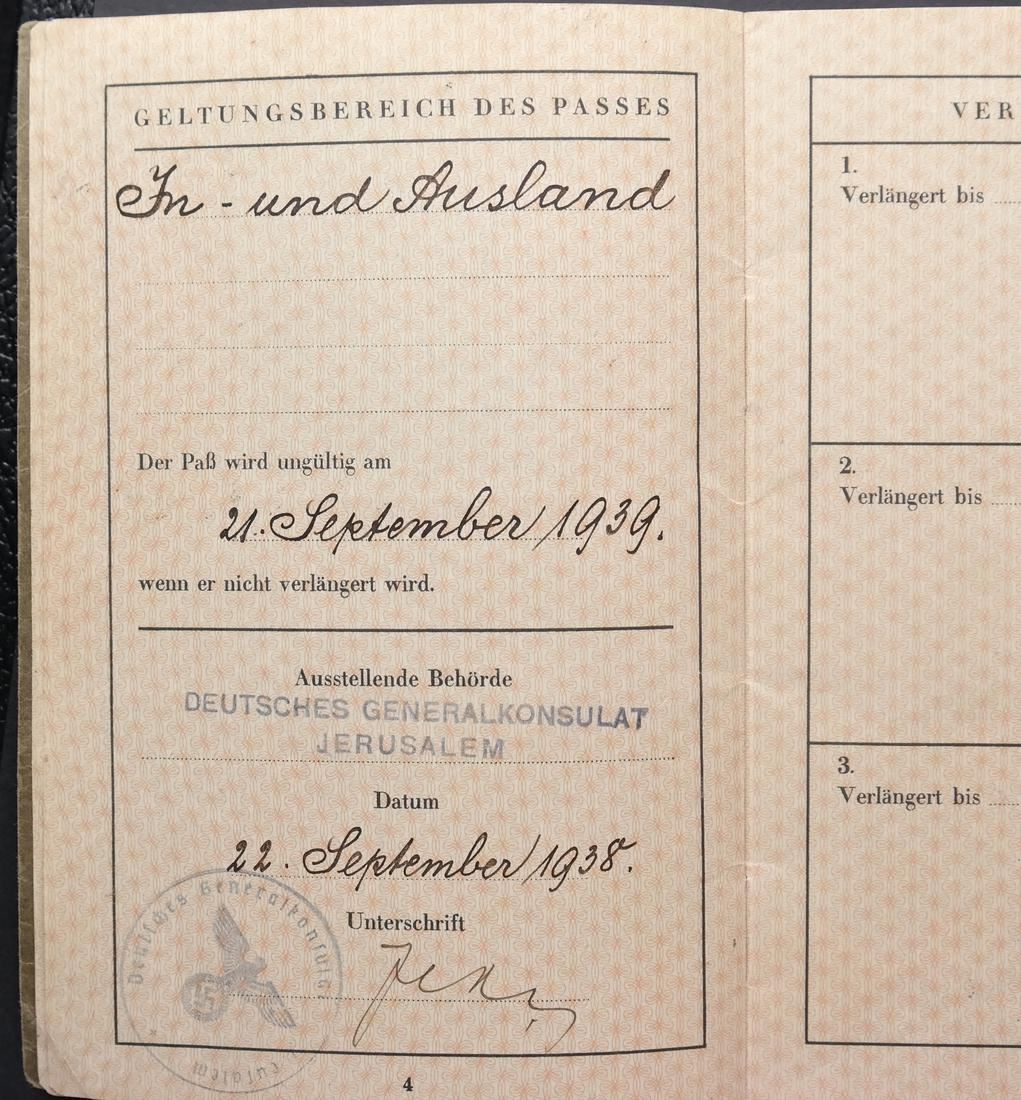 GELTUNGSBEREICH DES PASSES
In- und Ausland
Der Paß wird ungültig am
21. September 1939.
wenn er nicht verlängert wird.
Ausstellende Behörde
DEUTSCHES GENERALKONSULAT
JERUSALEM
Datum
22. September 1938.
Unterschrift
Deutsches Generalkonsulat
Jerusalem
4
VER
1.
Verlängert bis
2.
Verlängert bis
3.
Verlängert bis